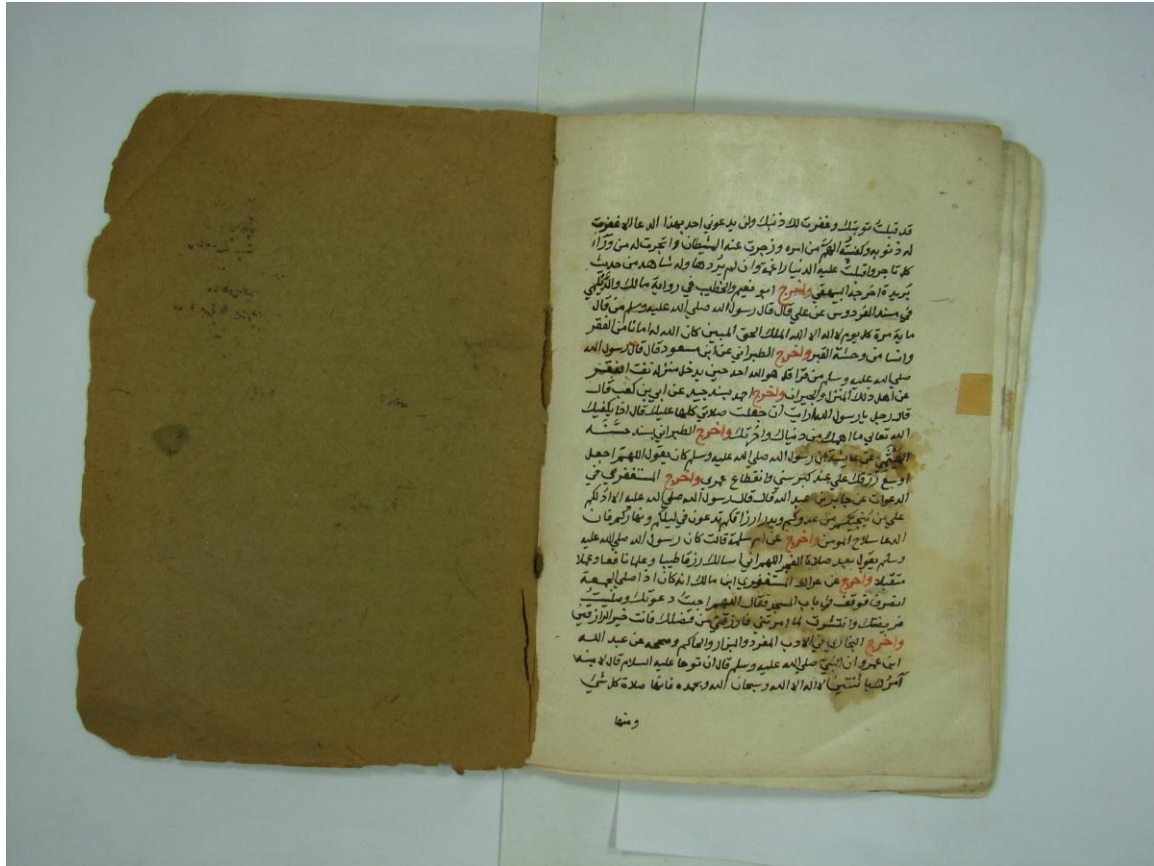 قد قبلت توبتك وغفرت لك ذنبك ولن يدعوني احد بهذا الدعا الا غفرت
له ذنوبه وكفيته المهم من امره وزجرت عنه الشيطان واتجرت له من وراء
كل تاجر واقبلت عليه الدنيا راغمة وان لم يردها وله شاهد من حديث
بريدة اخرجه البيهقي واخرج ابو نعيم والخطيب في رواية مالك والديلمي
في مسند الفردوس عن علي قال قال رسول الله صلى الله عليه وسلم من قال
ماية مرة كل يوم لا اله الا الله الملك الحق المبين كان الله له امانا من الفقر
وانسا من وحشة القبر واخرج الطبراني عن ابن مسعود قال قال رسول الله
صلى الله عليه وسلم من قرا قل هو الله احد حين يدخل منزله نفت الفقر
عن اهل ذلك المنزل والجيران واخرج احمد بسند جيد عن ابي بن كعب قال
قال رجل يا رسول الله ارايت ان جعلت صلاتي كلها عليك قال اذا يكفيك
الله تعالي ما اهمك من دنياك واخرتك واخرج الطبراني بسند حسنه
الهيثمي عن عايشة ان رسول الله صلى الله عليه وسلم كان يقول اللهم اجعل
اوسع رزقك علي عند كبر سني وانقطاع عمري واخرج المستغفري في
الدعوات عن جابر بن عبد الله قال قال رسول الله صلى الله عليه الا ادلكم
علي من ينجيكم من عدوكم ويدر ارزاقكم تدعون في ليلكم ونهاركم فان
الدعا سلاح المومن واخرج عن ام سلمة قالت كان رسول الله صلى الله عليه
وسلم يقول بعد صلاة الفجر اللهم اني اسالك رزقا طيبا وعلما نافعا وعملا
متقبلا واخرج عن عراك المستغفري ابن مالك انه كان اذا صلى الجمعة
انصرف فوقف في باب المسجد فقال اللهم اجبت دعوتك وصليت
فريضتك وانتشرت لما امرتني فارزقني من فضلك فانت خير الرازقين
واخرج البخاري في الادب المفرد والبزار والحاكم وصححه عن عبد الله
ابن عمرو ان النبي صلى الله عليه وسلم قال ان نوحا عليه السلام قال لابنه
آمرك باثنتين لا اله الا الله وسبحان الله وبحمده فانها صلاة كل شيء
ومنها